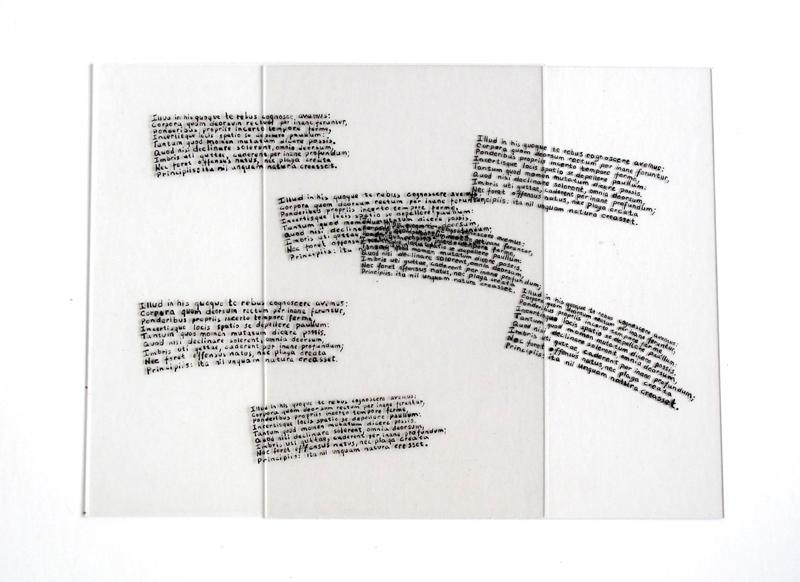 Illud in his quoque te rebus cognosce avemus:
Corpora quom deorsum rectum per inane feruntur,
Ponderibus propriis incerto tempore ferme,
Incertisque locis spatio se depellere paullum:
Tantum quod momen mutatum dicere possis.
Quod nisi declinare solerent, omnia deorsum,
Imbris uti guttai, caderent per inane profundum;
Nec foret offensus natus, nec plaga creata
Principiis: ita nil unquam natura creasset.
Illud in his quoque te rebus cognoscere avemus:
Corpora quom deorsum rectum per inane feruntur,
Ponderibus propriis incerto tempore ferme,
Incertisque locis spatio se depellere paullum:
Tantum quod momen mutatum dicere possis.
Quod nisi declinare solerent, omnia deorsum,
Imbris uti guttai, caderent per inane profundum;
Nec foret offensus natus, nec plaga creata
Principiis: ita nil unquam natura creasset.
Illud in his quoque te rebus cognoscere
Corpora quom deorsum rectum per inane feruntur,
Ponderibus propriis incerto tempore ferme,
Incertisque locis spatio se depellere paullum:
Tantum quod momen mutatum dicere possis.
Quod nisi
Imbris uti guttai,
Nec foret offensus
Principiis: ita
momen mutatum dicere possis.
Quod nisi declinare solerent, omnia deorsum,
Imbris uti guttai, caderent per inane profundum;
Nec foret offensus natus, nec plaga creata
Principiis: ita nil unquam natura creasset.
Illud in his quoque te rebus cognoscere avemus:
Corpora quom deorsum rectum per inane feruntur,
Ponderibus propriis incerto tempore ferme,
Incertisque locis spatio se depellere paullum:
Tantum quod momen mutatum dicere possis.
Quod nisi declinare solerent, omnia deorsum,
Imbris uti guttai, caderent per inane profundum;
Nec foret offensus natus, nec plaga creata
Principiis: ita nil unquam natura creasset.
Illud in his quoque te rebus cognoscere avemus:
Corpora quom deorsum rectum per inane feruntur,
Ponderibus propriis incerto tempore ferme,
Incertisque locis spatio se depellere paullum:
Tantum quod momen mutatum dicere possis.
Quod nisi declinare solerent, omnia deorsum,
Imbris uti guttai, caderent per inane profundum;
Nec foret offensus natus, nec plaga creata
Principiis: ita nil unquam natura creasset.
Illud in his quoque te rebus cognoscere avemus:
Corpora quom deorsum rectum per inane feruntur,
Ponderibus propriis incerto tempore ferme,
Incertisque locis spatio se depellere paullum:
Tantum quod momen mutatum dicere possis.
Quod nisi declinare solerent, omnia deorsum,
Imbris uti guttai, caderent per inane profundum;
Nec foret offensus natus, nec plaga creata
Principiis: ita nil unquam natura creasset.